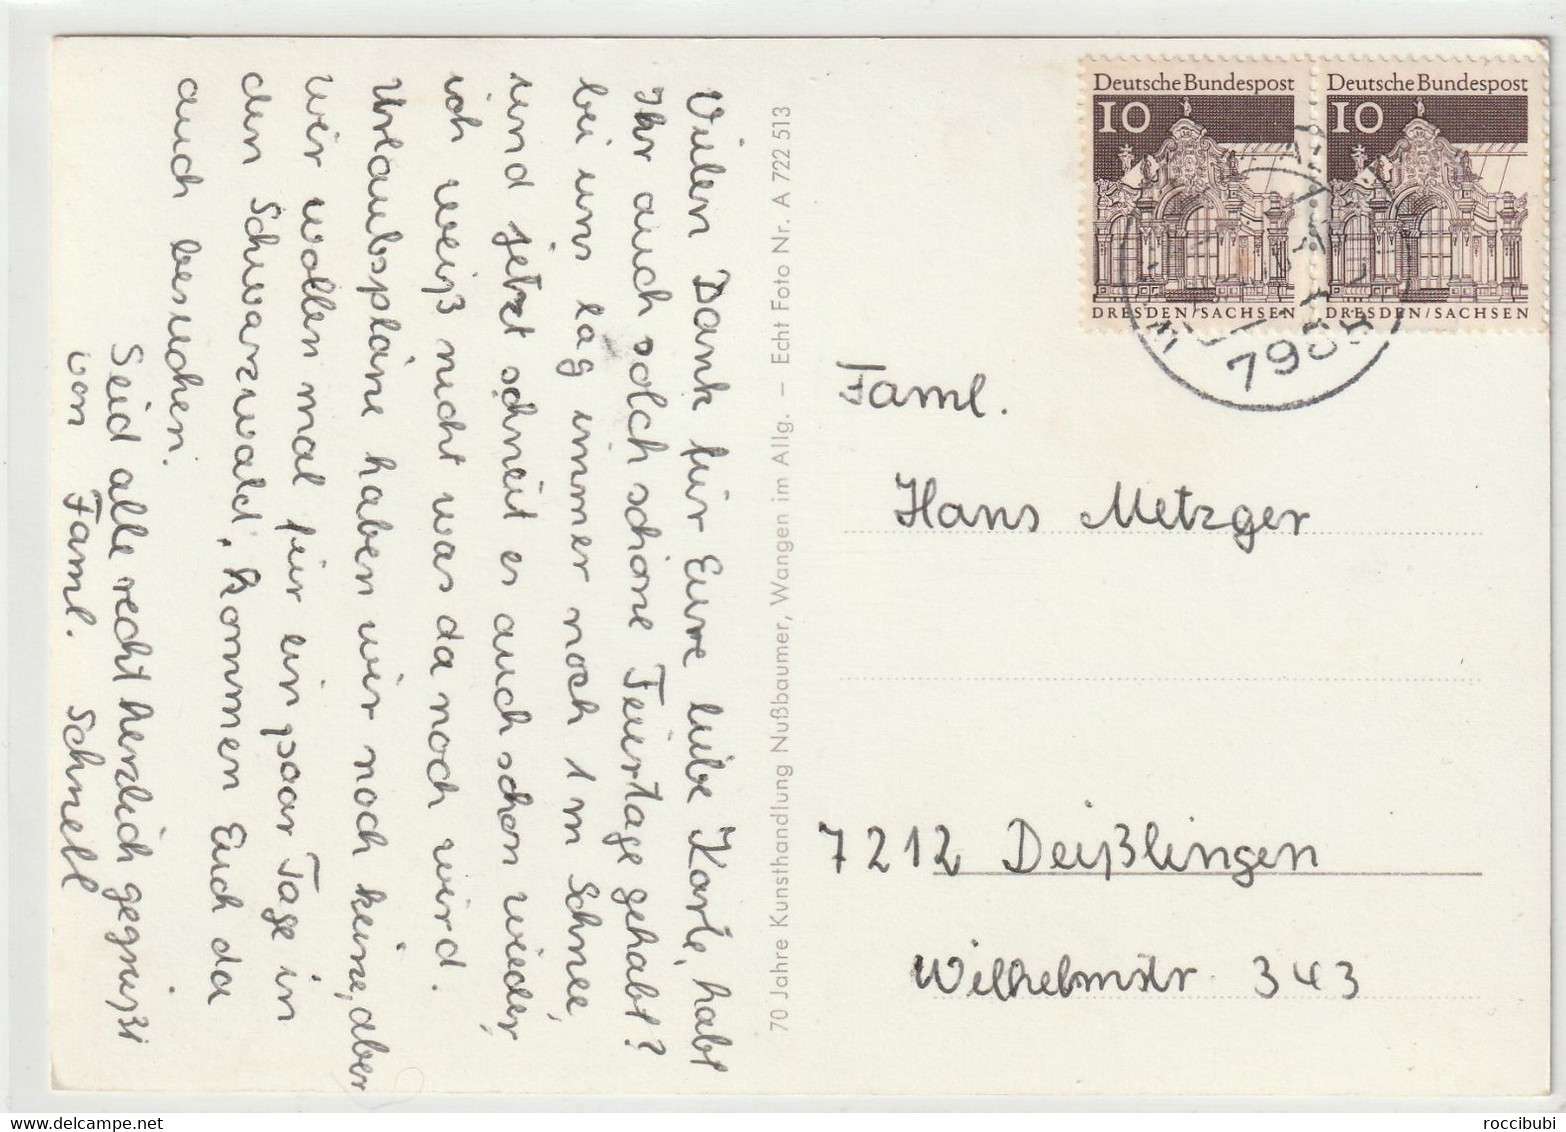 Vielen Dank für Eure liebe Karte, habt
Ihr auch solch schöne Feiertage gehabt?
bei uns lag immer noch 1 m Schnee,
und jetzt schneit es auch schon wieder,
ich weiß nicht was da noch wird.
Urlaubspläne haben wir noch keine, aber
wir wollen mal für ein paar Tage in
den Schwarzwald, kommen Euch da
auch besuchen.
Seid alle recht herzlich gegrüßt
von Faml. Schnell
70 Jahre Kunsthandlung Nußbaumer, Wangen im Allg. – Echt Foto Nr. A 722 513
Deutsche Bundespost
10
DRESDEN/SACHSEN
Deutsche Bundespost
10
DRESDEN/SACHSEN
Faml.
Hans Metzger
7212 Deißlingen
Wilhelmstr. 343
roccibubi